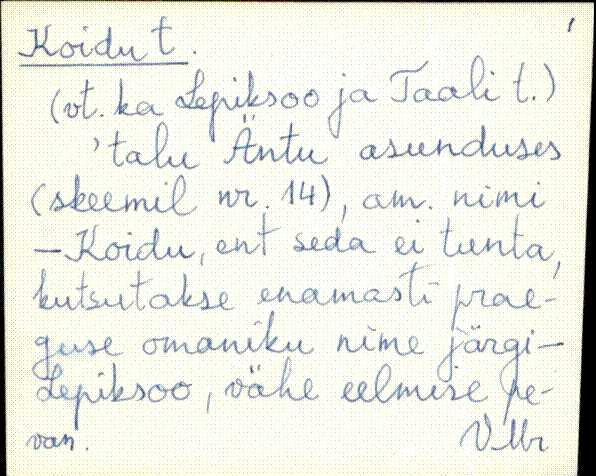 Koidu t.
(vt. ka Lepiksoo ja Taali t.)
'talu Äntu asunduses
(skeemil nr. 14), am. nimi
– Koidu, ent seda ei tunta,
kutsutakse enamasti prae-
guse omaniku nime järgi –
Lepiksoo, vähe eelmise pe-
van.